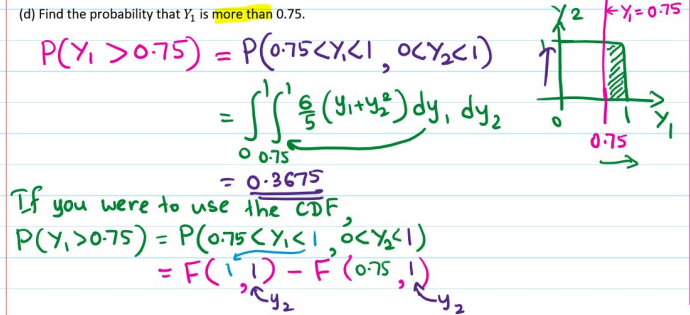 (d) Find the probability that Y₁ is more than 0.75.
P(Y₁ > 0.75) = P(0.75<Y₁<1, 0<Y₂<1)
= ∫₀¹ ∫₀.₇₅¹ 6/5 (y₁+y₂²) dy₁ dy₂
= 0.3675
If you were to use the CDF,
P(Y₁>0.75) = P(0.75<Y₁<1, 0<Y₂<1)
= F(1, 1) - F(0.75, 1)
y₂ y₂
Y2
←Y₁=0.75
1
0 1 Y₁
0.75